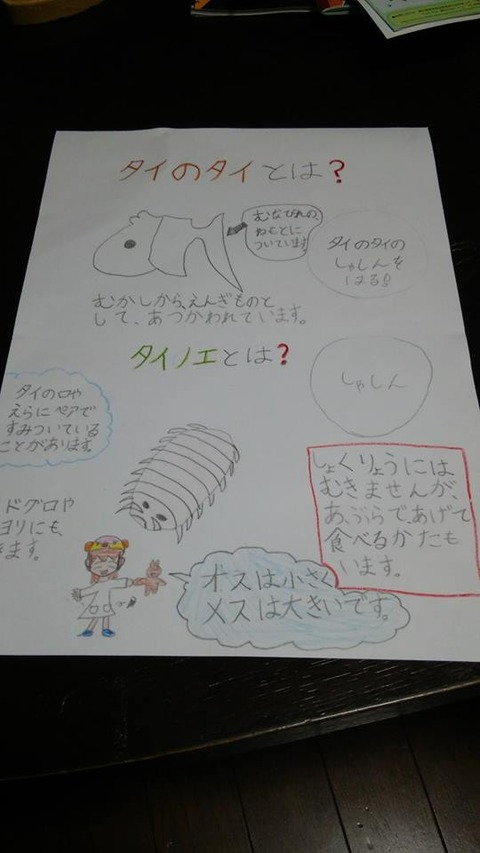 タイのタイとは?
むなびれの、
ねもとに
ついています。
タイのタイの
しゃしんを
はる!
むかしから、えんぎものと
して、あつかわれています。
タイノエとは?
しゃしん
タイの口や
えらにペアで
すみついている
ことがあります。
ドグロや
ヨリにも、
きます。
しょくりょうには
むきませんが、
あぶらであげて
食べるかたも
います。
オスは小さく
メスは大きいです。